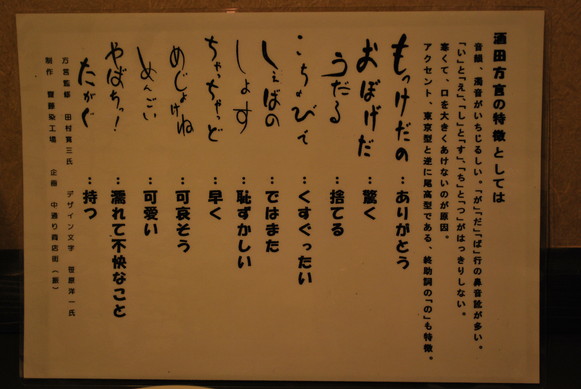 酒田方言の特徴としては
音韻、濁音がいちじるしい。「が」「だ」「ば」行の鼻音訛が多い。
「い」と「え」、「し」と「す」、「ち」と「つ」がはっきりしない。
寒くて、口を大きくあけないのが原因。
アクセント、東京型と逆に尾高型である、終助詞の「の」も特徴。
もっけだの：ありがとう
おぼげだ：驚く
うだる：捨てる
こちょびで：くすぐったい
しぇばの：ではまた
しょす：恥ずかしい
ちゃっちゃど：早く
めじょけね：可哀そう
めんごい：可愛い
やばちっ！：濡れて不快なこと
たがぐ：持つ
方言監修 田村寛三氏 デザイン文字 菅原洋一氏
制作 菅原染工場 企画 中通り商店街（振）